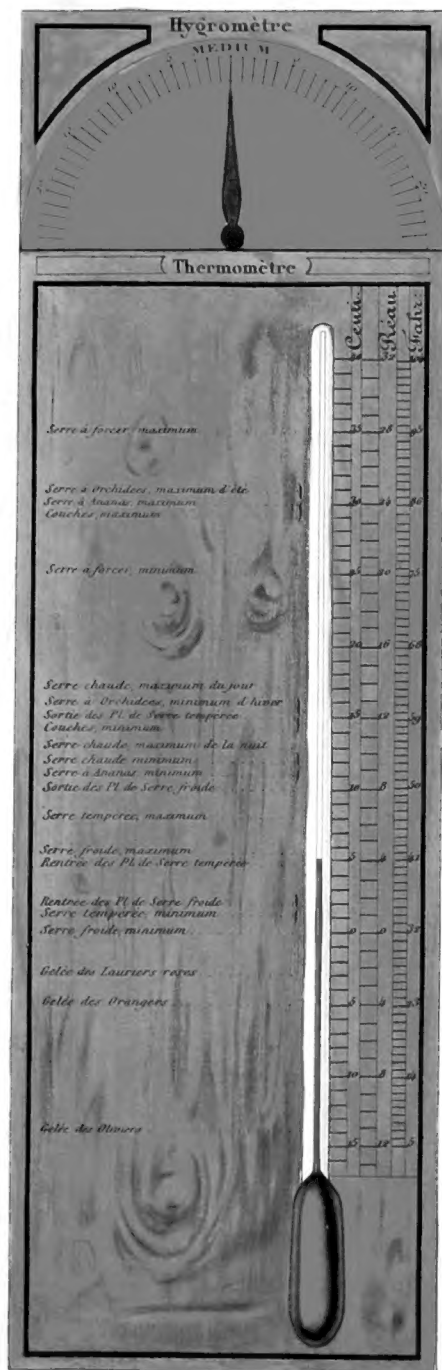 Hygromètre
MEDIUM
10 5 5 10
(Thermomètre)
Centi. Réau. Fahr.
Serre à forcer, maximum 35 28 95
Serre à Orchidées, maximum d'été
Serre à Ananas, maximum 30 24 86
Couches, maximum
Serre à forcer, minimum 25 20 75
20 16 68
Serre chaude, maximum du jour
Serre à Orchidées, minimum d'hiver
Sortie des Pl. de Serre tempérée 15 12 59
Couches, minimum
Serre chaude, maximum de la nuit
Serre chaude minimum
Serre à Ananas, minimum
Sortie des Pl. de Serre froide 10 8 50
Serre tempérée, maximum
Serre froide, maximum
Rentrée des Pl. de Serre tempérée 5 4 41
Rentrée des Pl. de Serre froide
Serre tempérée, minimum
Serre froide, minimum 0 0 32
Gelée des Lauriers roses
Gelée des Orangers 5 4 23
10 8 14
Gelée des Oliviers 15 12 5